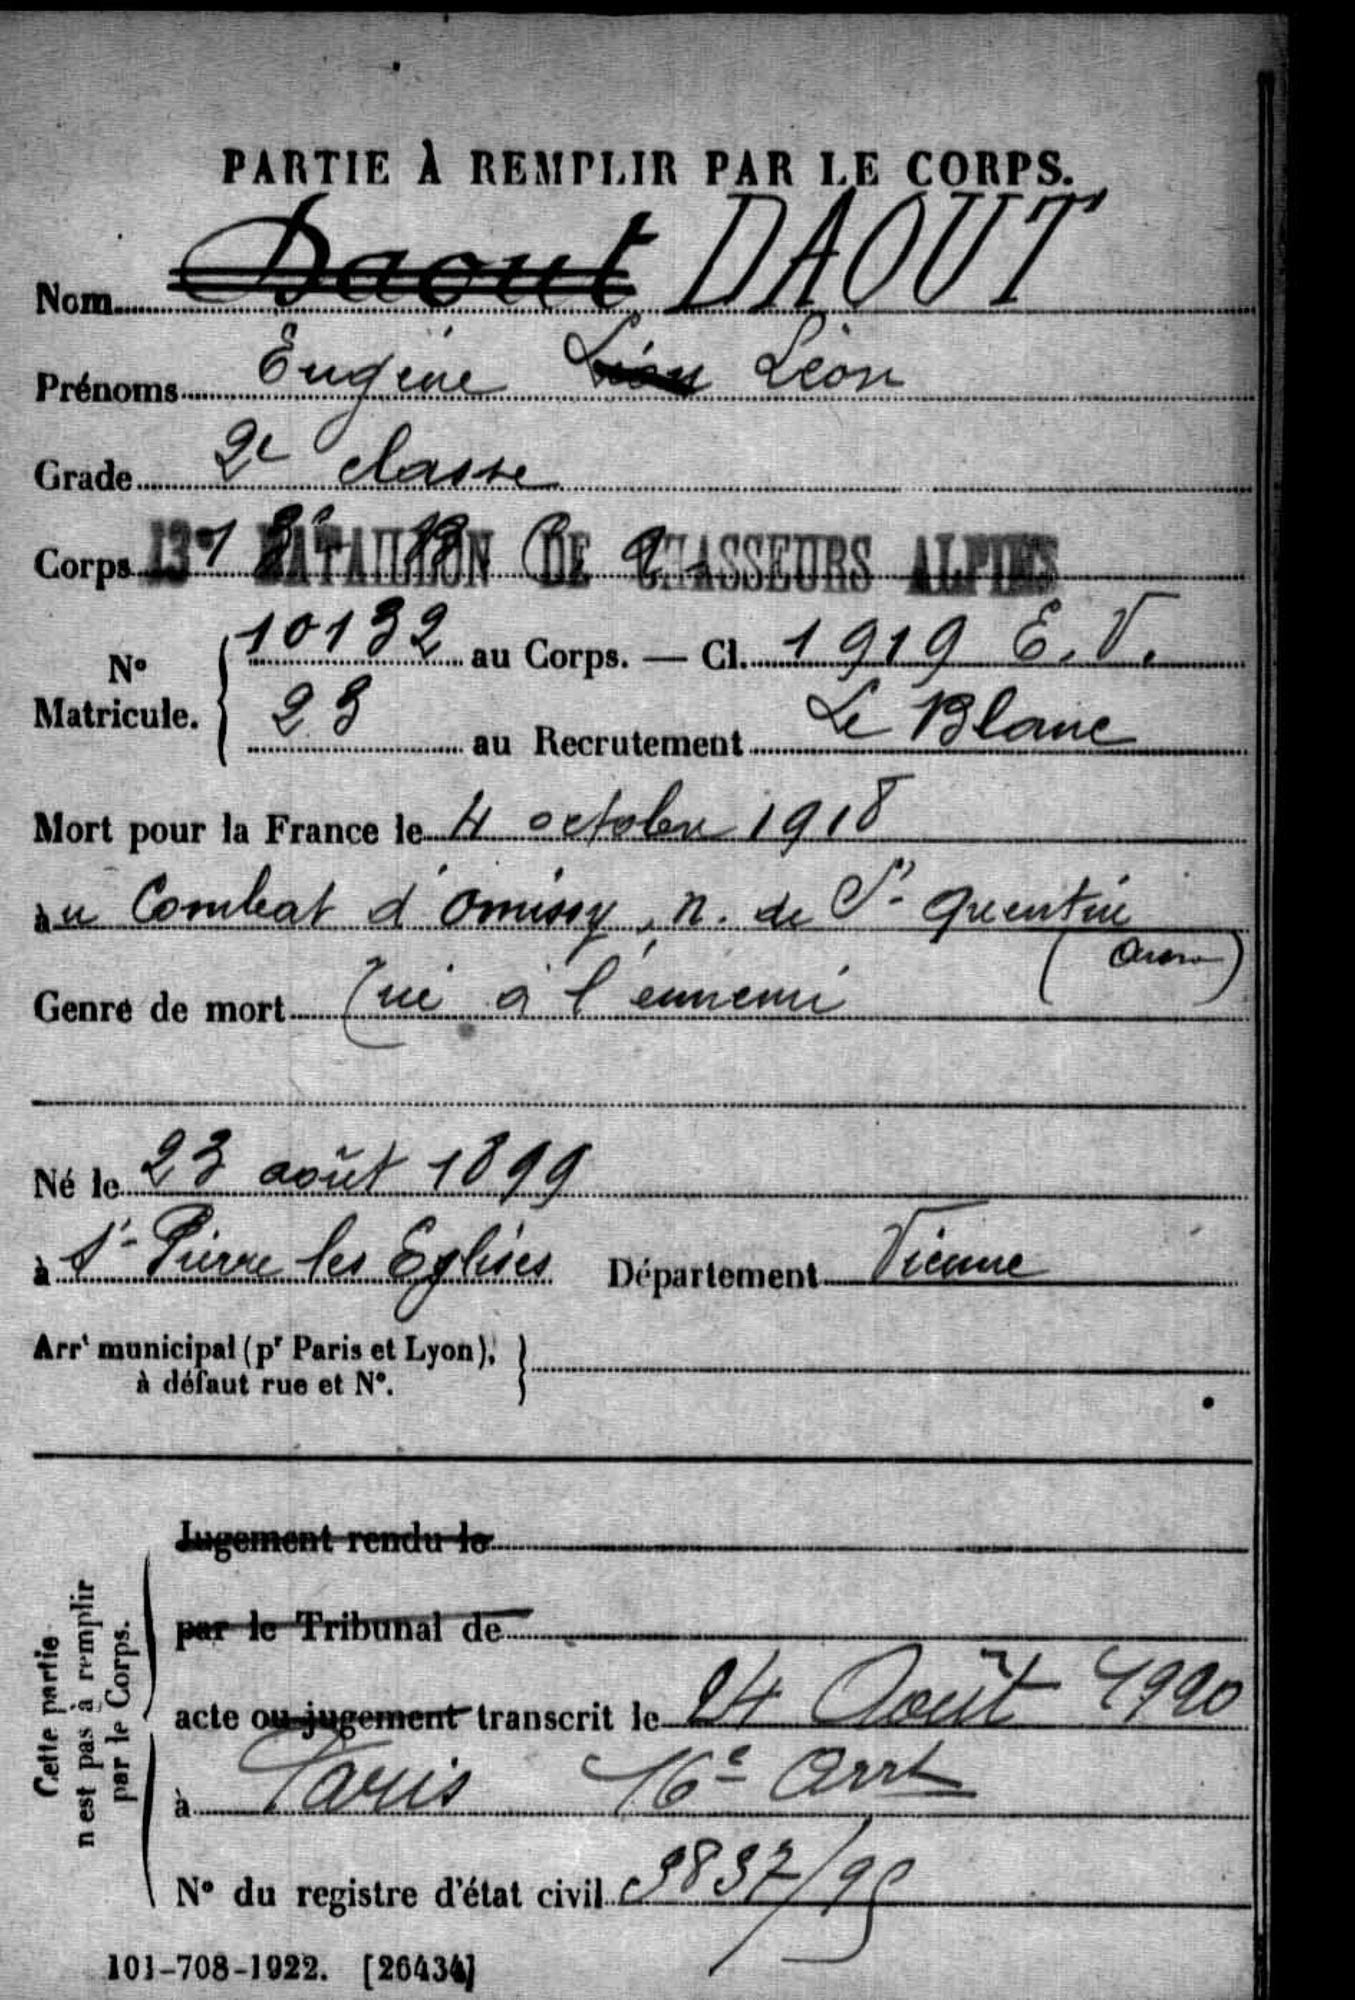 PARTIE À REMPLIR PAR LE CORPS.
Nom Daout DAOUT
Prénoms Eugène Léon Léon
Grade 2e classe
Corps 13e BATAILLON DE CHASSEURS ALPINS
N° Matricule. 10132 au Corps. — Cl. 1919 E. V.
23 au Recrutement Le Blanc
Mort pour la France le 4 octobre 1918
au Combat d'Omissy, n. de St Quentin
(Aisne)
Genre de mort Tué à l'ennemi
Né le 23 août 1899
à St Pierre les Eglises Département Vienne
Arrt municipal (pr Paris et Lyon),
à défaut rue et N°.
Cette partie
n'est pas à remplir
par le Corps.
Jugement rendu le
par le Tribunal de
acte ou jugement transcrit le 24 Août 1920
à Paris 16e Arrt
N° du registre d'état civil
101-708-1922. [26434]